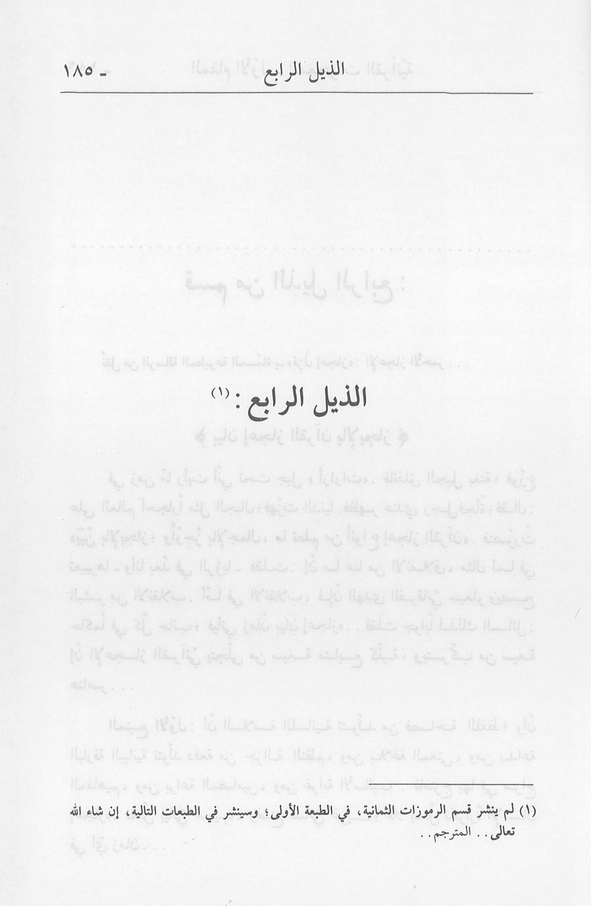 الذيل الرابع - ١٨٥
الذيل الرابع : (١)
(١) لم ينشر قسم الرموزات الثمانية، في الطبعة الأولى؛ وسينشر في الطبعات التالية، إن شاء الله
تعالى. . المترجم. .